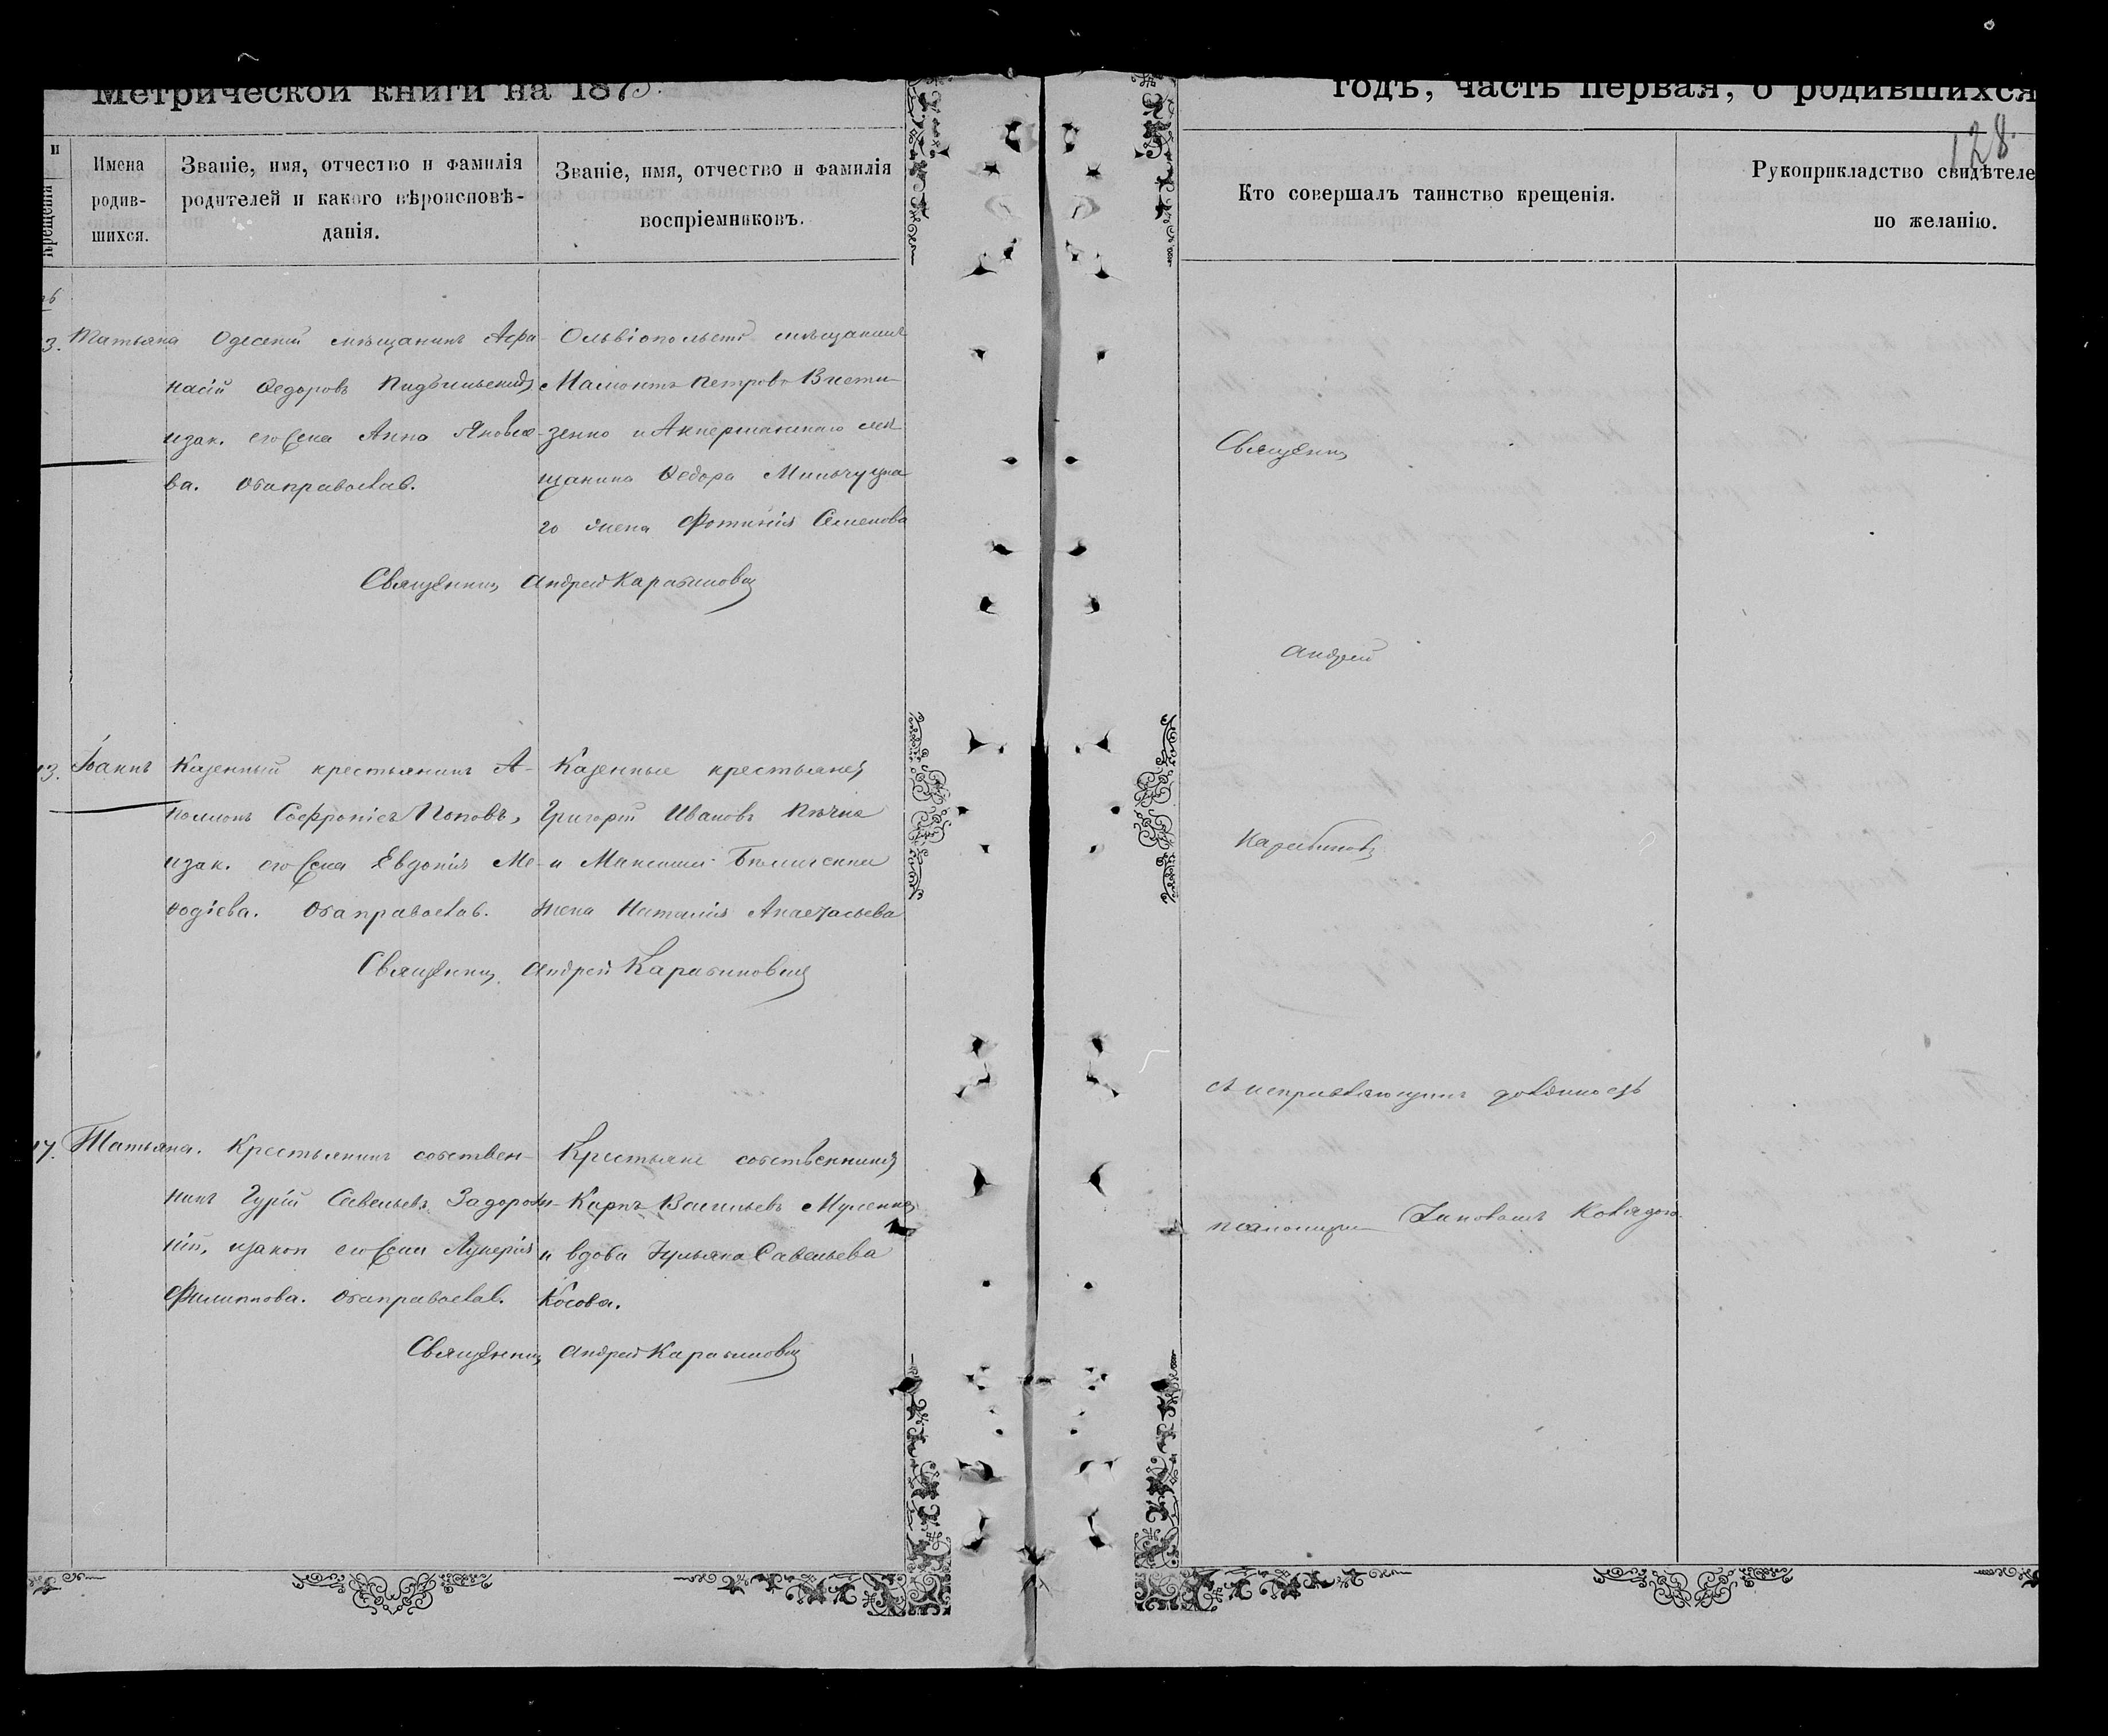 Метрической книги на 1875.
годъ, часть первая, о родившихся
128.
и
крещенія
Имена
родив-
шихся.
Званіе, имя, отчество и фамилія
родителей и какого вѣроисповѣ-
данія.
Званіе, имя, отчество и фамилія
воспріемниковъ.
Кто совершалъ таинство крещенія.
Рукоприкладство свидѣтеле
по желанію.
3.
Татьяна
Одескій мѣщанинъ Афа-
насій Ѳедоровъ
изак. его жена Анна Яковле-
ва. Оба православ.
Ольвіопольскій мѣщанинъ
Мамонтъ Петровъ
зенко и Аккерманскаго мѣ-
щанина Ѳедора
го жена Фотинія Семенова
Священникъ Андрей Карабиновъ
13.
Іоаннъ
Казенный крестьянинъ А-
поллонъ Софроніевъ Поповъ,
изак. его жена Евдокія Ме-
ѳодіева. Оба православ.
Казенные крестьяне
Григорій Ивановъ
и
жена Наталія Анастасьева
Священникъ Андрей Карабиновъ
17.
Татьяна.
Крестьянинъ собствен-
никъ Гурій Савельевъ Задорож-
ній, изакон его жена Лукерія
Филиппова. Оба православ.
Крестьяне собственники
Карпъ Васильевъ
и вдова Ульяна Савельева
Косова.
Священникъ Андрей Карабиновъ
Священникъ
Андрей
Карабиновъ
съ исправляющимъ должность
псаломщика